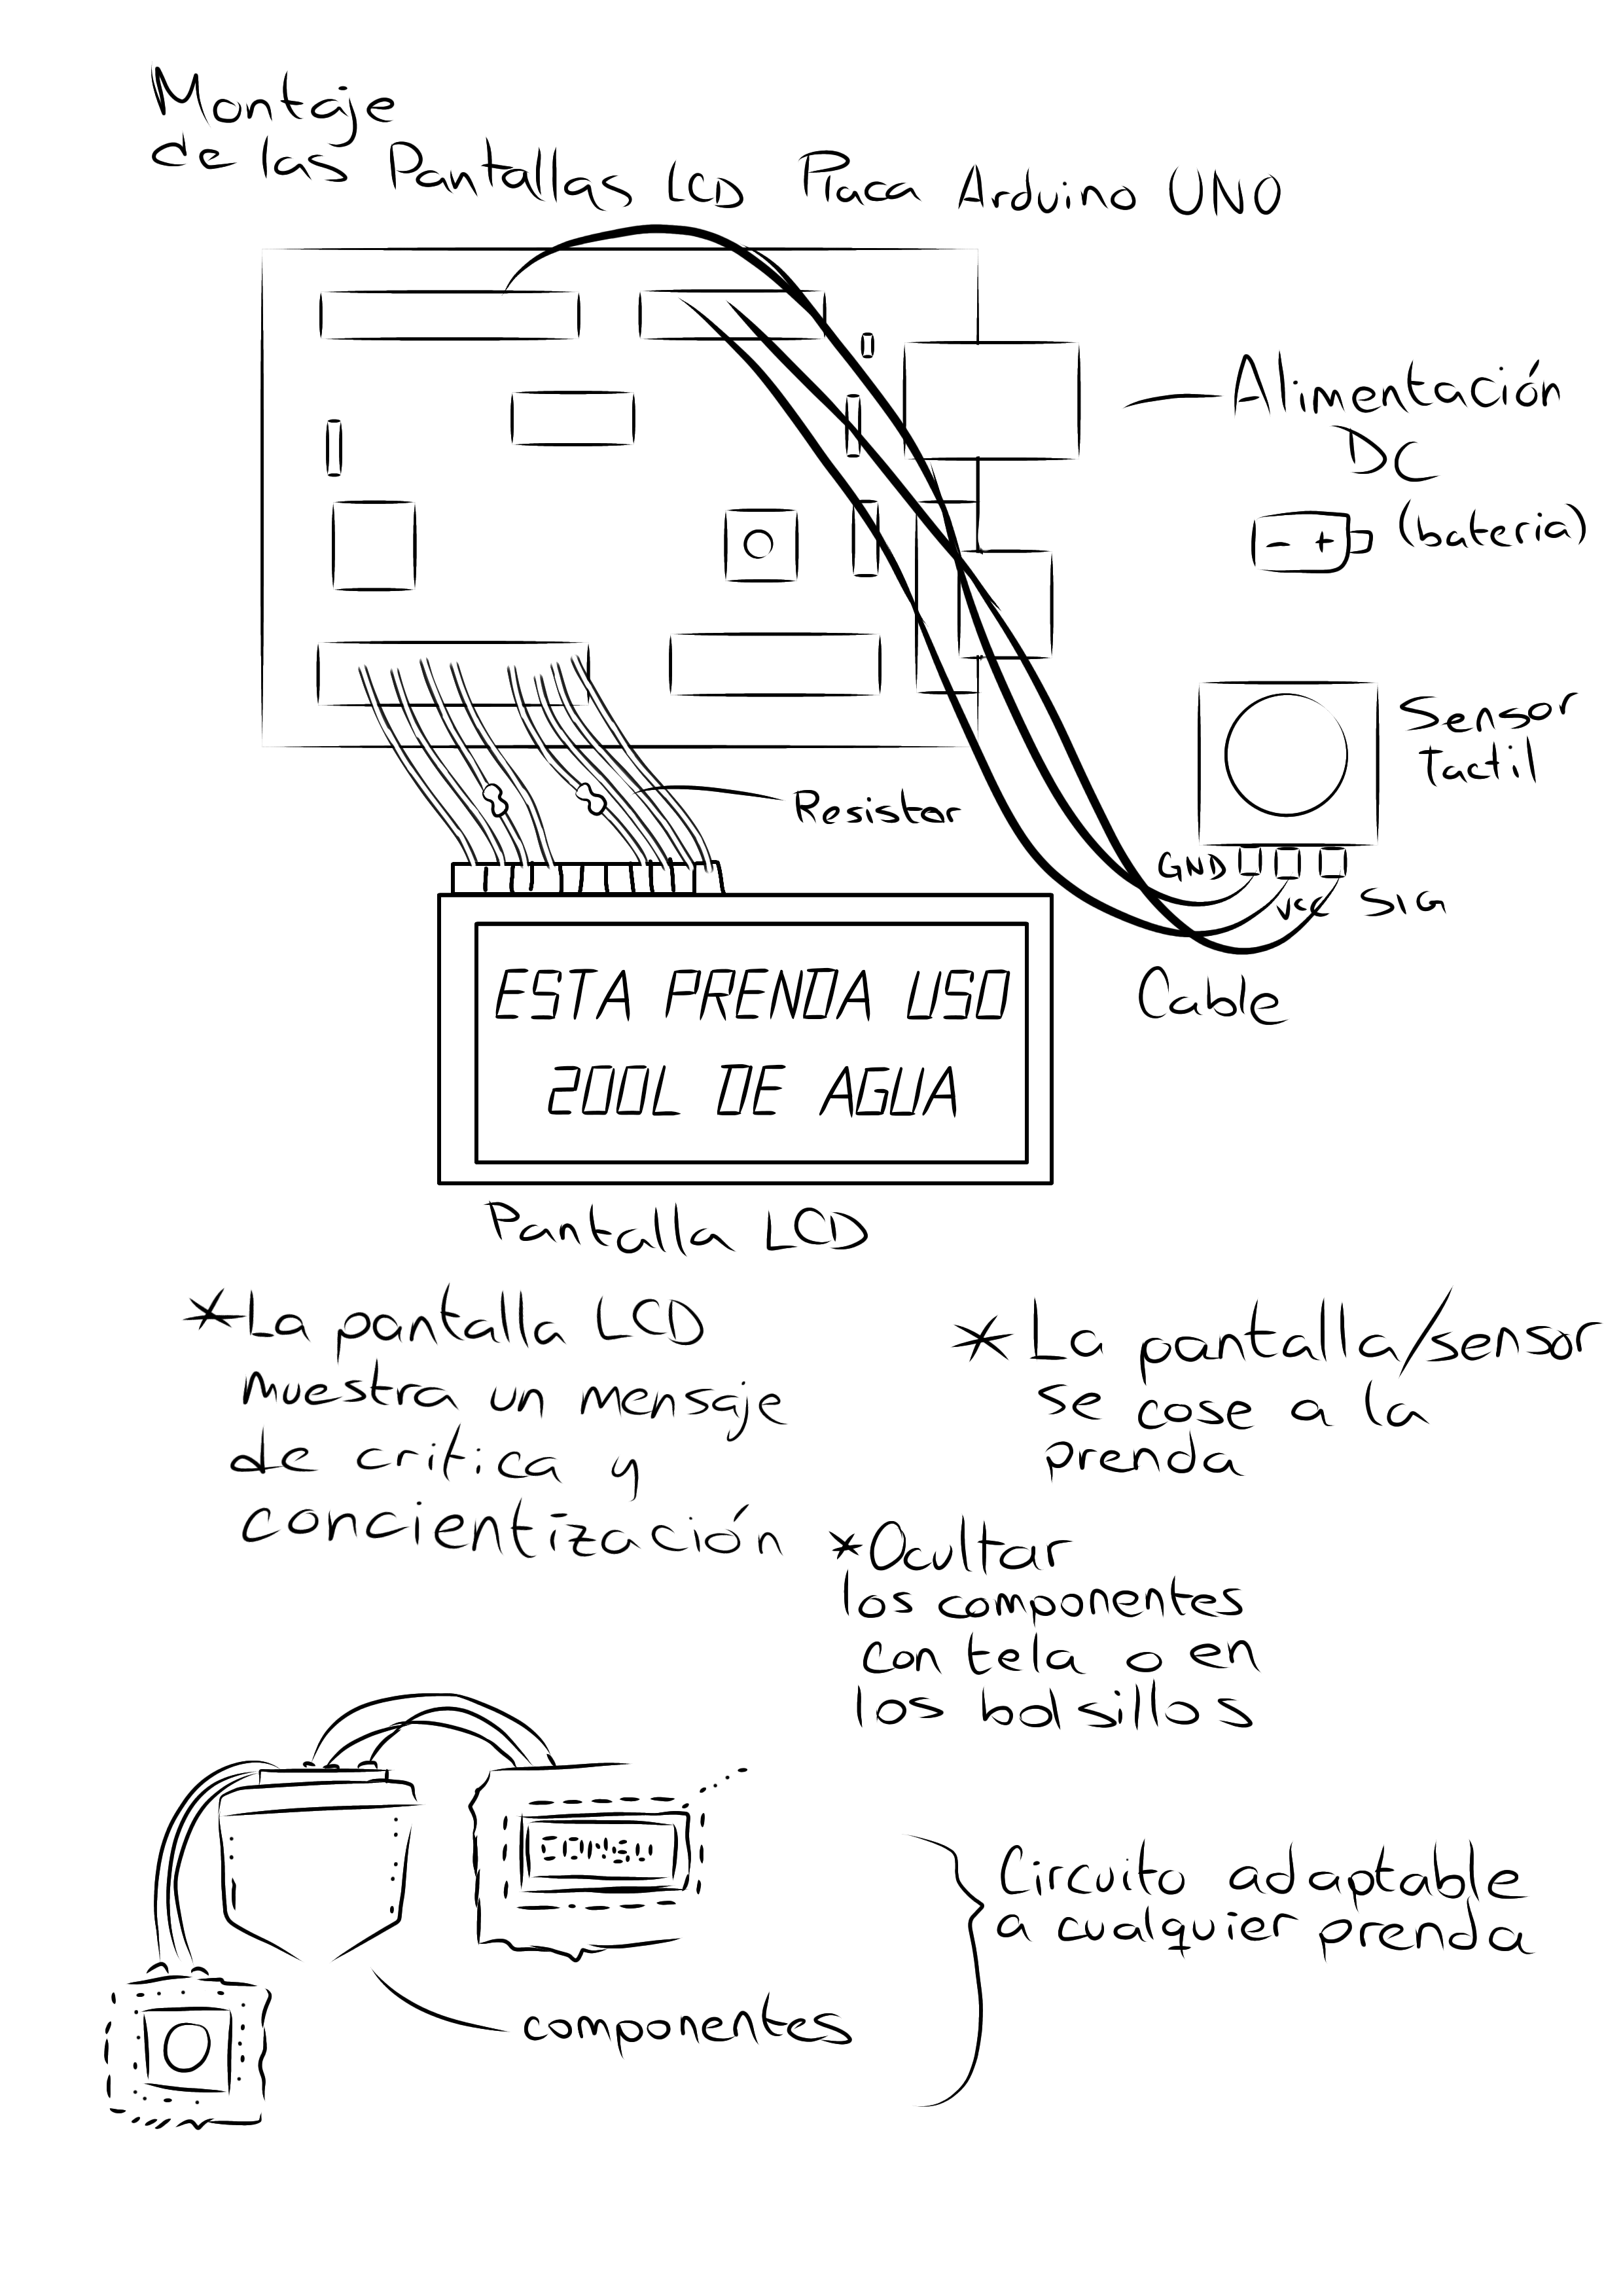 Montaje
de las Pantallas LCD Placa Arduino UNO
Alimentación
DC
(bateria)
- +
Sensor
Tactil
Resistor
GND
VCC SIG
Cable
ESTA PRENDA USO
200L DE AGUA
Pantalla LCD
*La pantalla LCD
muestra un mensaje
de critica y
concientización
* La pantalla/sensor
se cose a la
prenda
*Ocultar
los componentes
con tela o en
los bolsillos
Circuito adaptable
a cualquier prenda
componentes